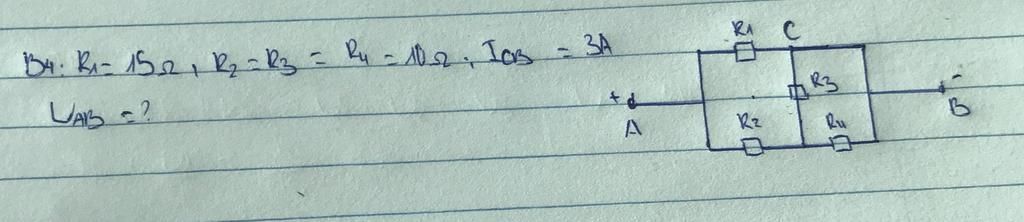 B4: R1 = 15Ω, R2 = R3 = R4 = 10Ω, ICB = 3A
UAB = ?
R1 C
+ A
R3
- B
R2 R4